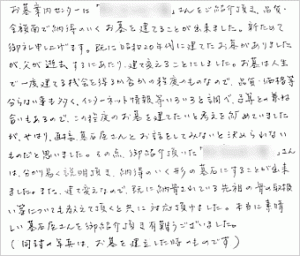 お墓案内センターに「 」さんをご紹介頂き、品質・
金額面で納得のいくお墓を建てることが出来ました。新ためて
御礼申し上げます。既に 20年側に建てたお墓がありました
が、父が逝去するにあたり、建て変えることにしました。お墓は人生
で一度建てる機会を得るか否かの程度のものなので、品質・価格等
分らない事も多く、インターネット情報等いろいろと調べ、予算との兼ね
合いもあるので、この程度のお墓を建てたいと考えを 始めていました
が、やはり、直接墓石屋さんとお話をしてみないと決められない
ものだと思いました。その点、御紹介頂いた「 」さん
は、分かり易く説明頂き、納得のいく形の墓石にすることが出来
ました。また、建て変えなので、既に納骨されている先祖の骨の取扱
い等についても教えて頂くと共に対応頂けました。本当に素晴
しい墓石屋さんを御紹介頂き有難うございました。
(同封の写真は、お墓を建立した時のものです)